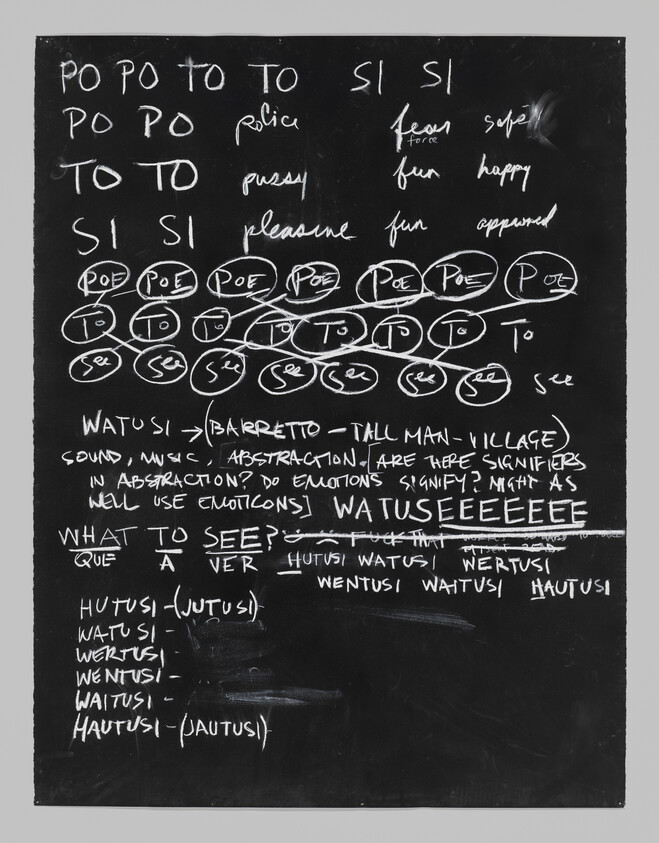 PO PO TO TO SI SI
PO PO police fear safe
force
TO TO pussy fun happy
SI SI pleasure fun approved
POE POE POE POE POE POE POE
TO TO TO TO TO TO TO TO
See See See See See See See See
WATUSI → (BARRETTO – TALL MAN – VILLAGE)
SOUND, MUSIC, ABSTRACTION. [ARE THERE SIGNIFIERS
IN ABSTRACTION? DO EMOTIONS SIGNIFY? MIGHT AS
WELL USE EMOTICONS] WATUSEEEEEEEE
WHAT TO SEE? FUCK THAT
QUE A VER HUTUSI WATUSI WERTUSI
WENTUSI WAITUSI HAUTUSI
HUTUSI – (JUTUSI)
WATUSI –
WERTUSI –
WENTUSI –
WAITUSI –
HAUTUSI – (JAUTUSI)